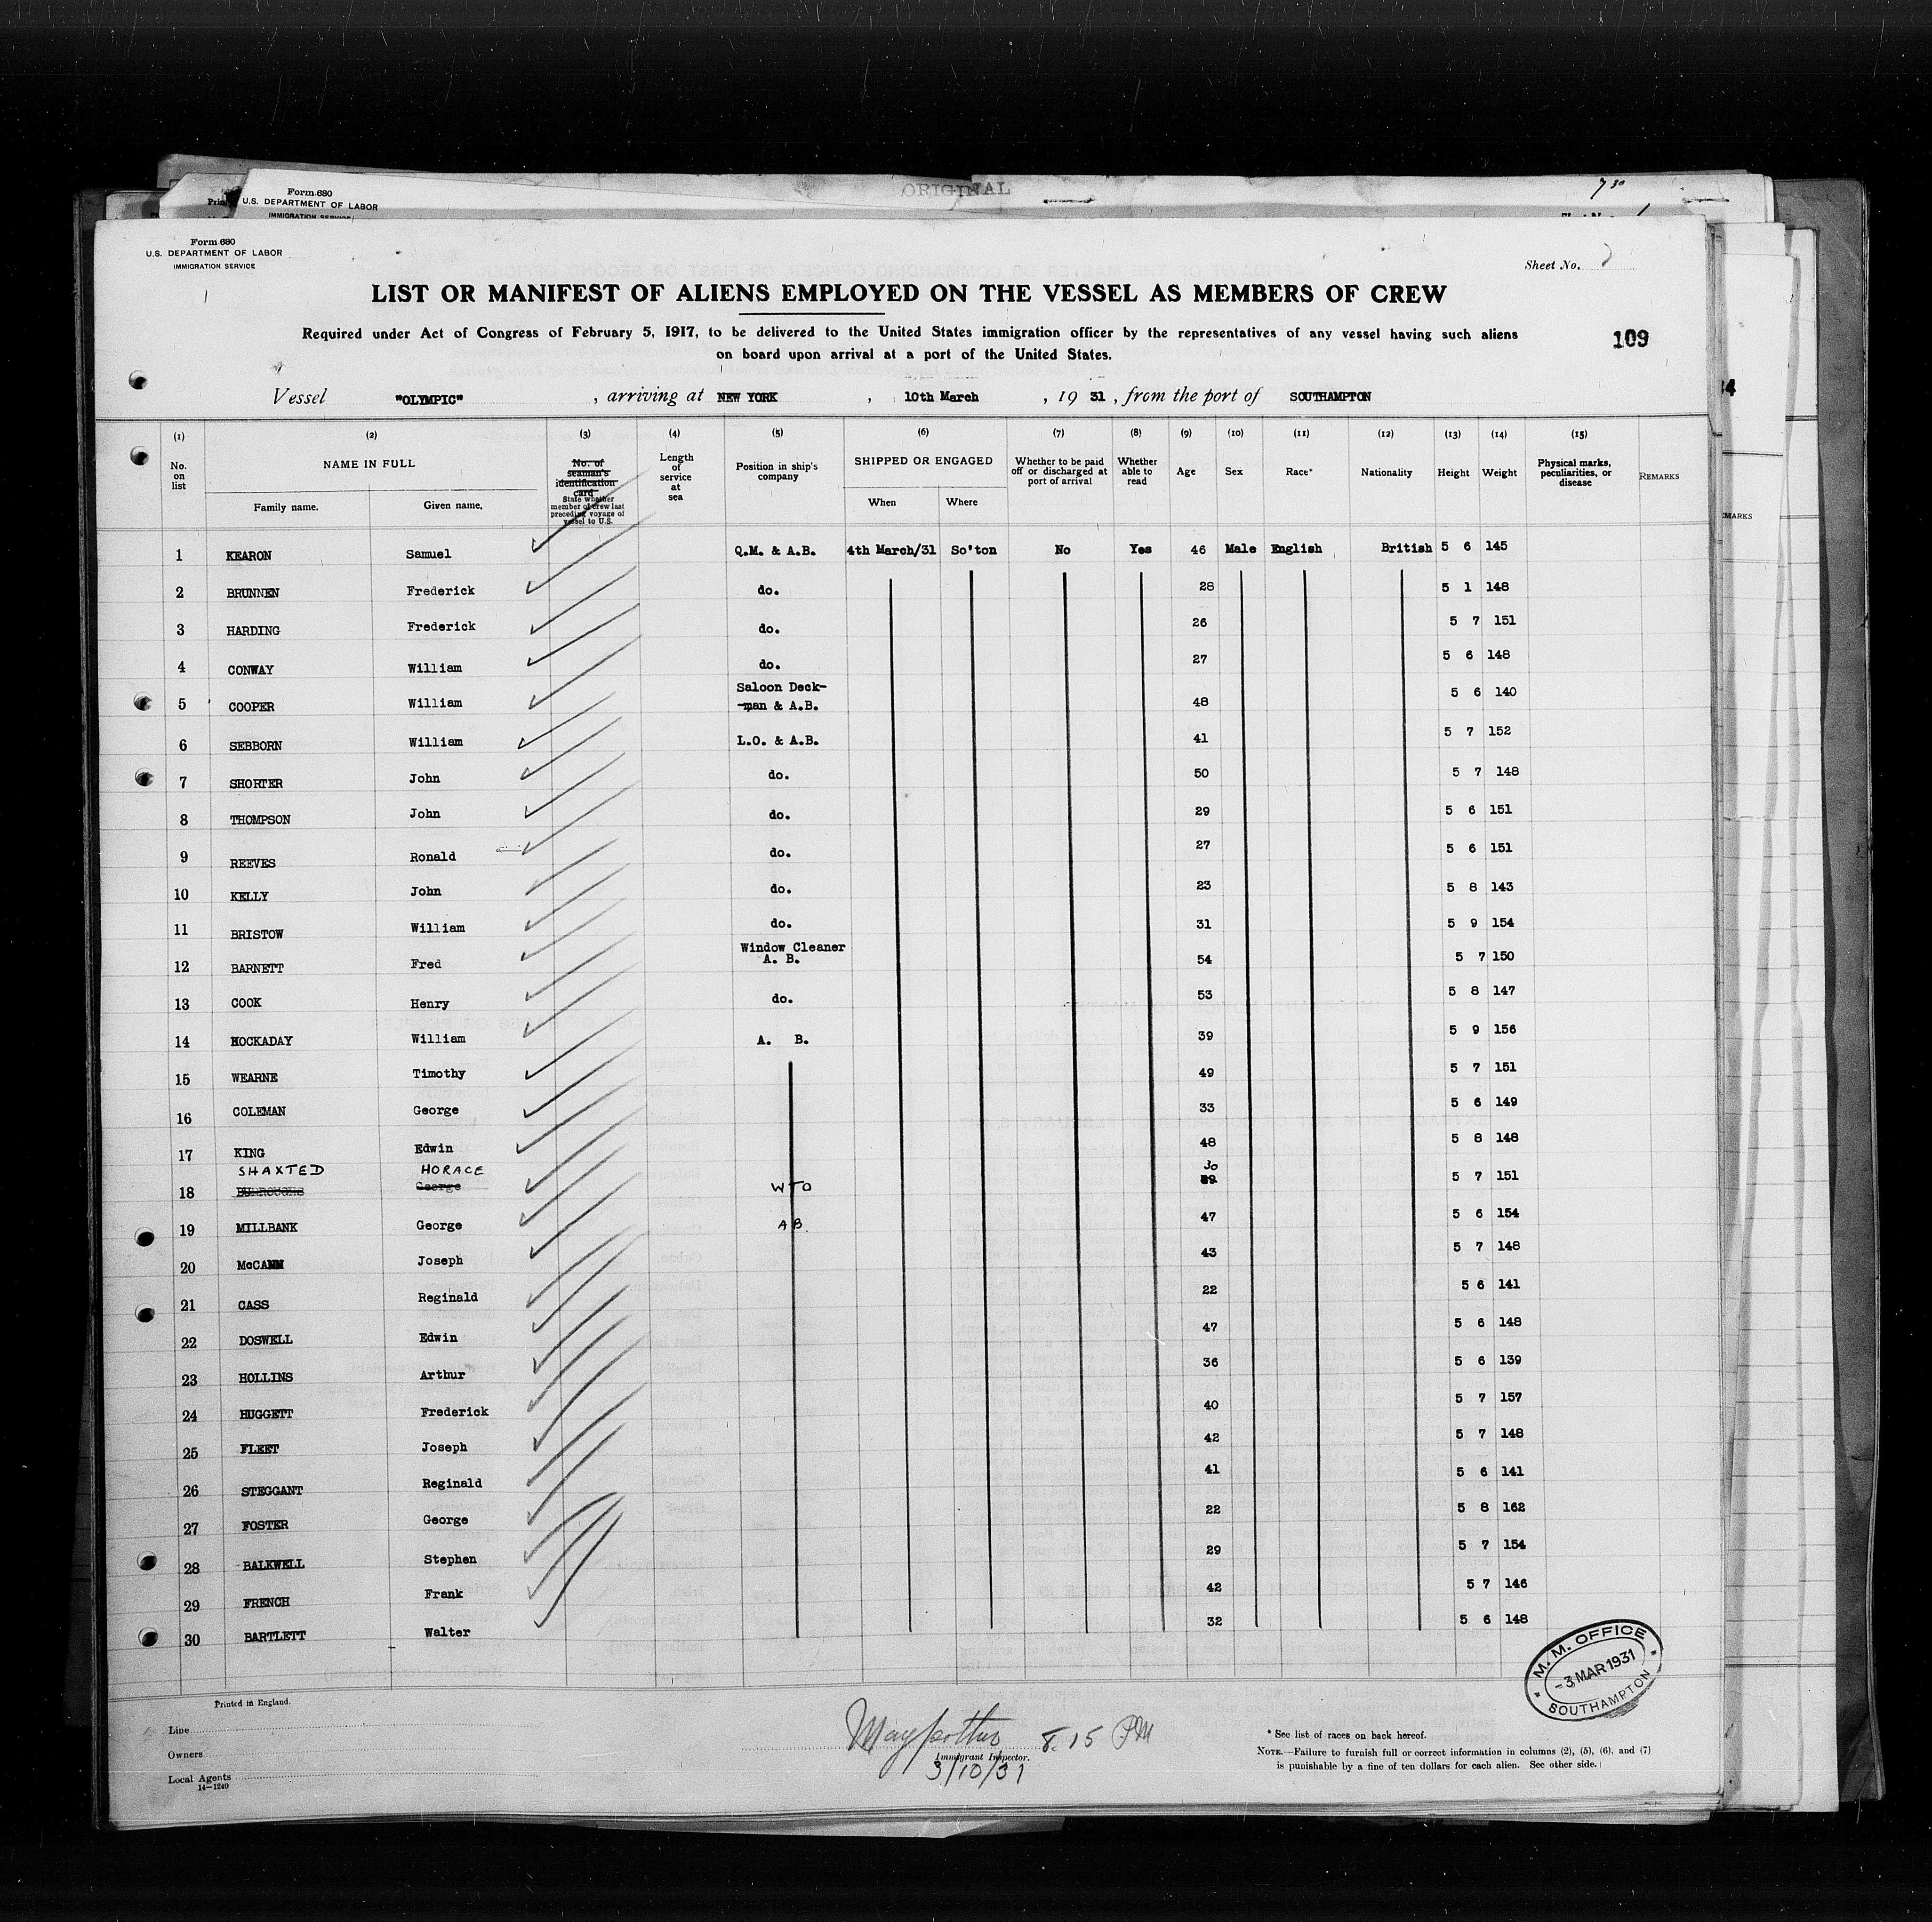 ORIGINAL
7 30
Form 680
U.S. DEPARTMENT OF LABOR
IMMIGRATION SERVICE
Form 680
U.S. DEPARTMENT OF LABOR
IMMIGRATION SERVICE
Sheet No.
LIST OR MANIFEST OF ALIENS EMPLOYED ON THE VESSEL AS MEMBERS OF CREW
Required under Act of Congress of February 5, 1917, to be delivered to the United States immigration officer by the representatives of any vessel having such aliens
on board upon arrival at a port of the United States.
109
Vessel "OLYMPIC", arriving at NEW YORK, 10th March, 19 31, from the port of SOUTHAMPTON
(1) (2) (3) (4) (5) (6) (7) (8) (9) (10) (11) (12) (13) (14) (15)
No. on list
NAME IN FULL
Family name. Given name.
No. of seaman's identification card
State whether member of crew last preceding voyage of vessel to U.S.
Length of service at sea
Position in ship's company
SHIPPED OR ENGAGED
When Where
Whether to be paid off or discharged at port of arrival
Whether able to read
Age
Sex
Race*
Nationality
Height
Weight
Physical marks, peculiarities, or disease
REMARKS
1 KEARON Samuel Q.M. & A.B. 4th March/31 So'ton No Yes 46 Male English British 5 6 145
2 BRUNNEN Frederick do. 28 5 1 148
3 HARDING Frederick do. 26 5 7 151
4 CONWAY William do. 27 5 6 148
5 COOPER William Saloon Deck-
-man & A.B. 48 5 6 140
6 SEBBORN William L.O. & A.B. 41 5 7 152
7 SHORTER John do. 50 5 7 148
8 THOMPSON John do. 29 5 6 151
9 REEVES Ronald do. 27 5 6 151
10 KELLY John do. 23 5 8 143
11 BRISTOW William do. 31 5 9 154
12 BARNETT Fred Window Cleaner
A. B. 54 5 7 150
13 COOK Henry do. 53 5 8 147
14 HOCKADAY William A. B. 39 5 9 156
15 WEARNE Timothy 49 5 7 151
16 COLEMAN George 33 5 6 149
17 KING Edwin 48 5 8 148
SHAXTED HORACE 30
18 BURROUGHS George WTO 39 5 7 151
19 MILLBANK George AB. 47 5 6 154
20 McCANN Joseph 43 5 7 148
21 CASS Reginald 22 5 6 141
22 DOSWELL Edwin 47 5 6 148
23 HOLLINS Arthur 36 5 6 139
24 HUGGETT Frederick 40 5 7 157
25 FLEET Joseph 42 5 7 148
26 STEGGANT Reginald 41 5 6 141
27 FOSTER George 22 5 8 162
28 BALKWELL Stephen 29 5 7 154
29 FRENCH Frank 42 5 7 146
30 BARTLETT Walter 32 5 6 148
M. M. OFFICE
-3 MAR 1931
SOUTHAMPTON
Printed in England.
Line
Owners
Local Agents
14-1240
8.15 PM
Immigrant Inspector.
3/10/31
* See list of races on back hereof.
NOTE.—Failure to furnish full or correct information in columns (2), (5), (6), and (7)
is punishable by a fine of ten dollars for each alien. See other side.